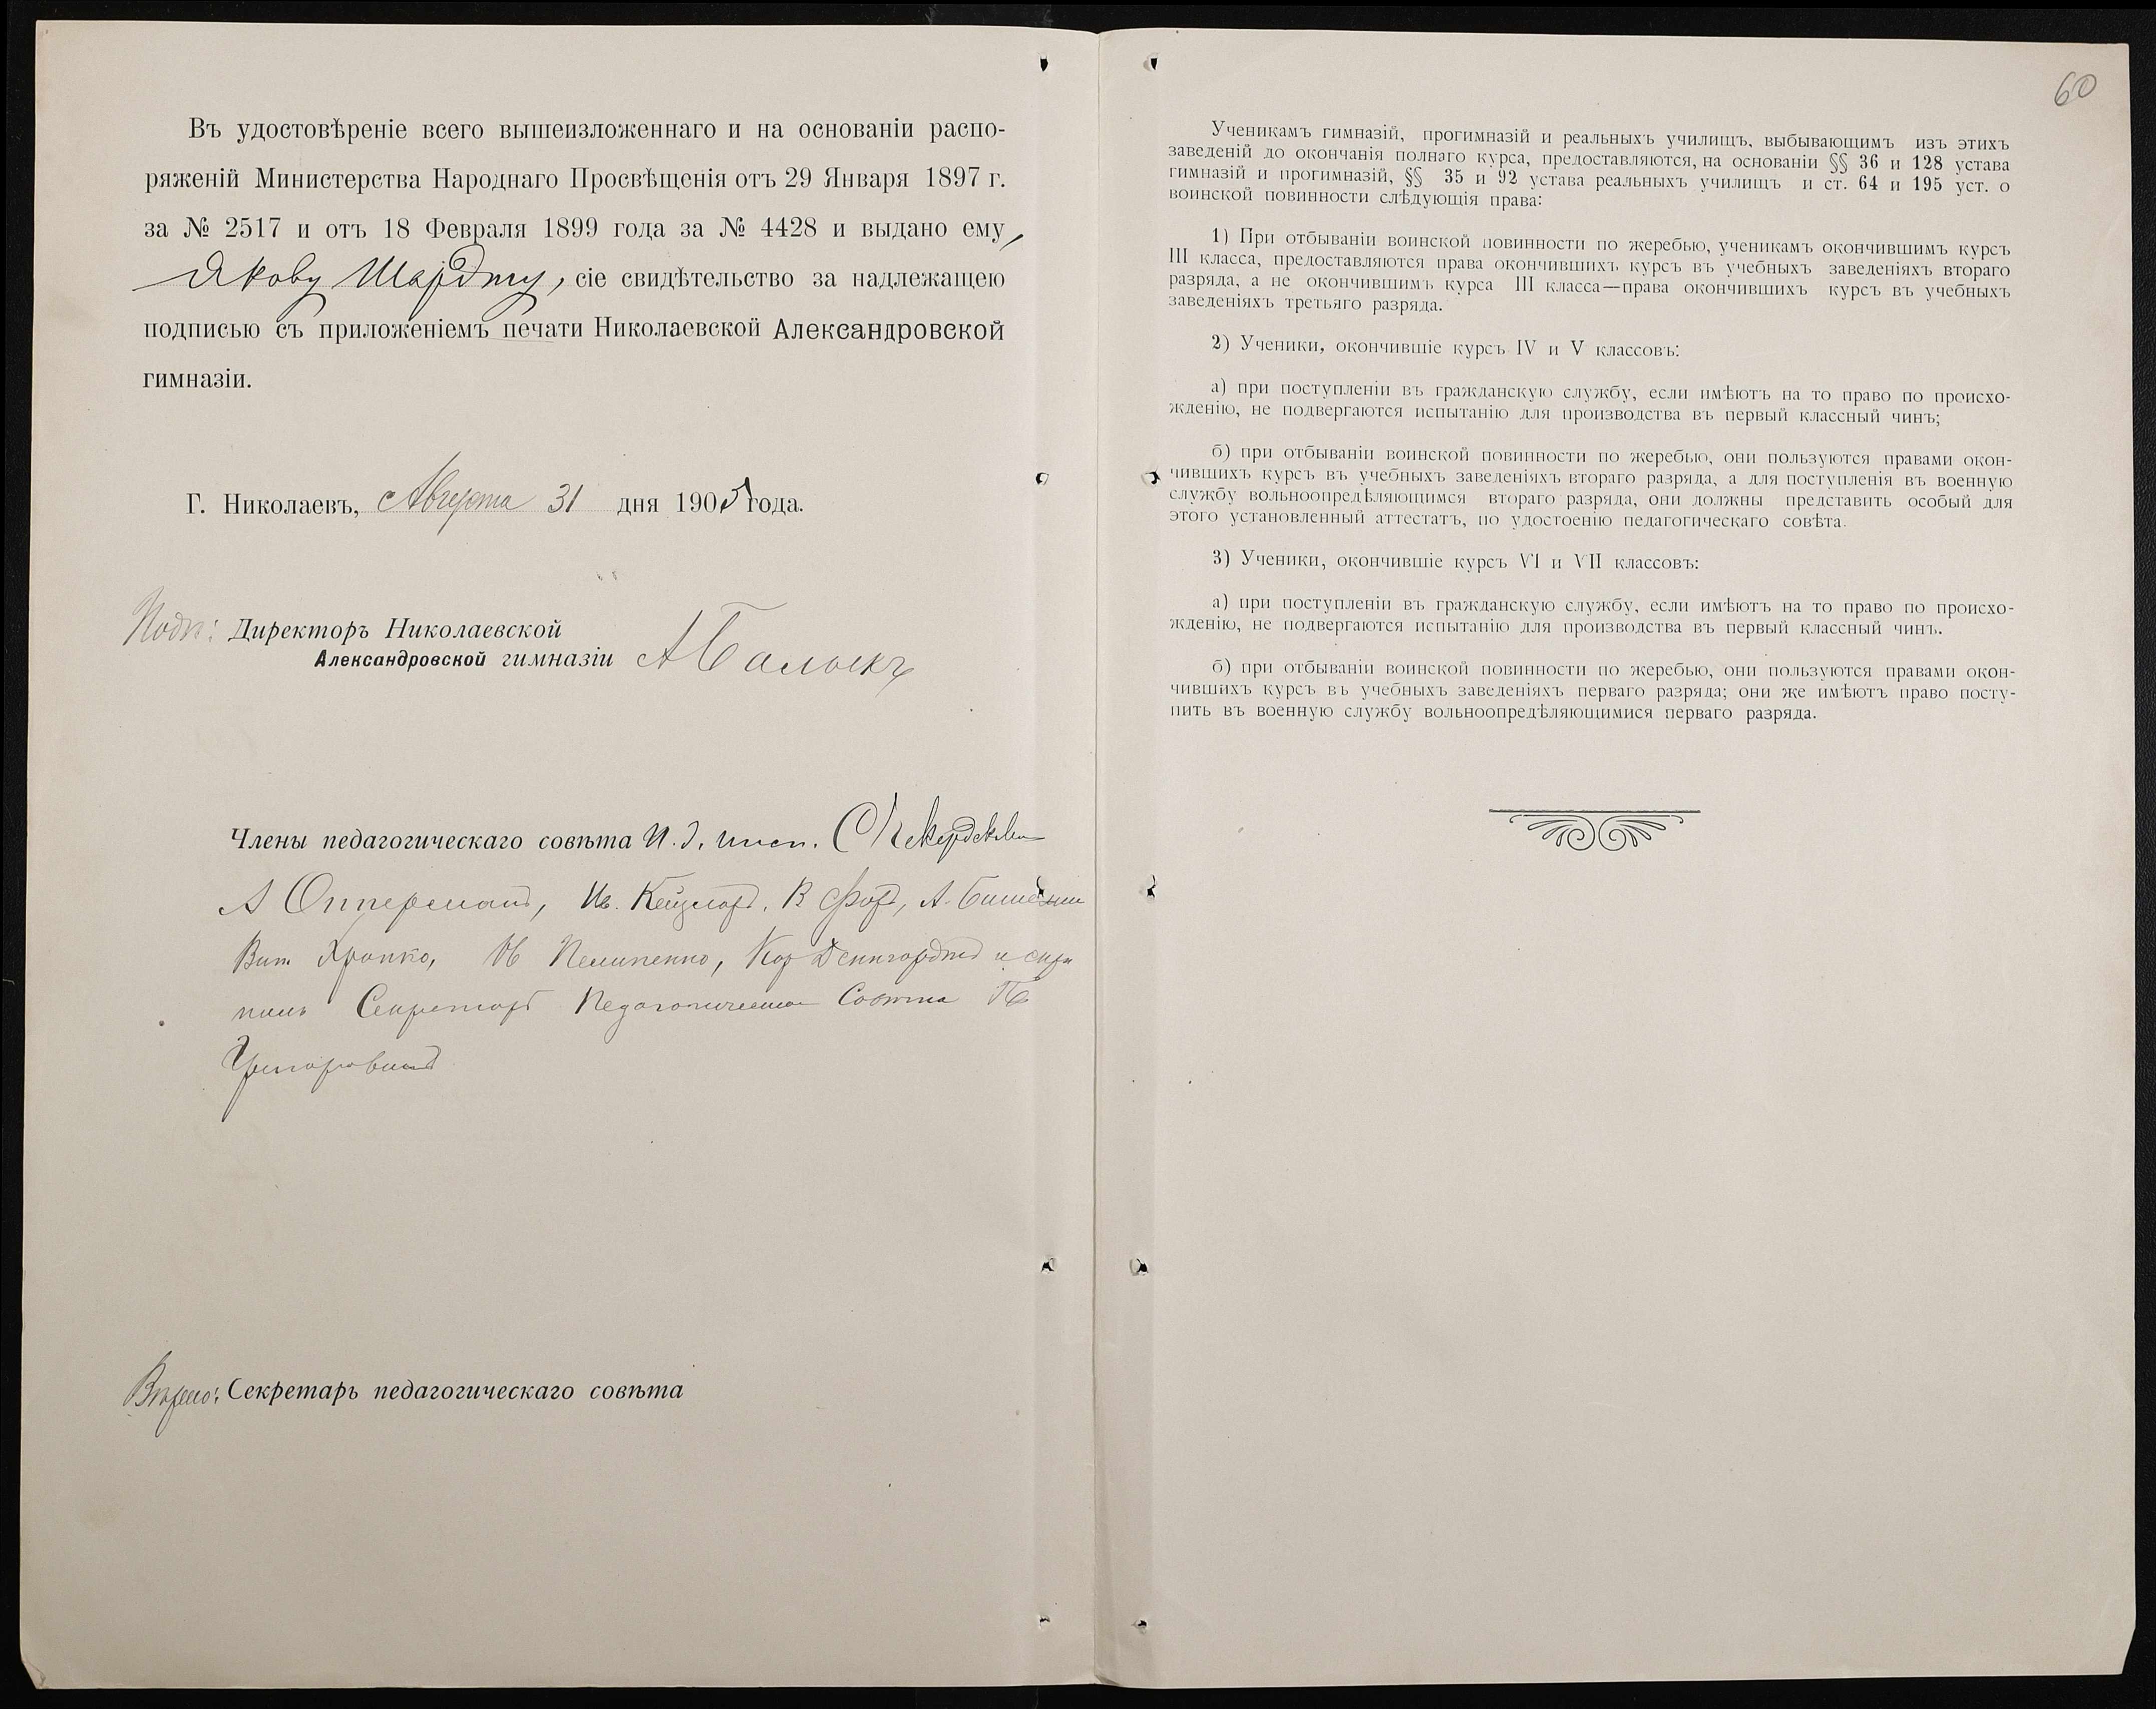 Въ удостовѣреніе всего вышеизложеннаго и на основаніи распо-
ряженій Министерства Народнаго Просвѣщенія отъ 29 Января 1897 г.
за № 2517 и отъ 18 Февраля 1899 года за № 4428 и выдано ему,
Якову Шардту, сіе свидѣтельство за надлежащею
подписью съ приложеніемъ печати Николаевской Александровской
гимназіи.
Г. Николаевъ, Августа 31 дня 1905 года.
Подп: Директоръ Николаевской
Александровской гимназіи А Балыкъ
Члены педагогическаго совѣта И. д. инсп.
А Опперманъ, Ив. В Фохт, А.
Вит Хропко, Пелипенко, и скрѣ
пилъ Секретарь Педагогическаго Совѣта
Григоровичъ
Вѣрно: Секретарь педагогическаго совѣта
60
Ученикамъ гимназій, прогимназій и реальныхъ училищъ, выбывающимъ изъ этихъ
заведеній до окончанія полнаго курса, предоставляются, на основаніи §§ 36 и 128 устава
гимназій и прогимназій, §§ 35 и 92 устава реальныхъ училищъ и ст. 64 и 195 уст. о
воинской повинности слѣдующія права:
1) При отбываніи воинской повинности по жеребью, ученикамъ окончившимъ курсъ
III класса, предоставляются права окончившихъ курсъ въ учебныхъ заведеніяхъ втораго
разряда, а не окончившимъ курса III класса—права окончившихъ курсъ въ учебныхъ
заведеніяхъ третьяго разряда.
2) Ученики, окончившіе курсъ IV и V классовъ:
а) при поступленіи въ гражданскую службу, если имѣютъ на то право по происхо-
жденію, не подвергаются испытанію для производства въ первый классный чинъ;
б) при отбываніи воинской повинности по жеребью, они пользуются правами окон-
чившихъ курсъ въ учебныхъ заведеніяхъ втораго разряда, а для поступленія въ военную
службу вольноопредѣляющимся втораго разряда, они должны представить особый для
этого установленный аттестатъ, по удостоенію педагогическаго совѣта.
3) Ученики, окончившіе курсъ VI и VII классовъ:
а) при поступленіи въ гражданскую службу, если имѣютъ на то право по происхо-
жденію, не подвергаются испытанію для производства въ первый классный чинъ.
б) при отбываніи воинской повинности по жеребью, они пользуются правами окон-
чившихъ курсъ въ учебныхъ заведеніяхъ перваго разряда; они же имѣютъ право посту-
пить въ военную службу вольноопредѣляющимися перваго разряда.